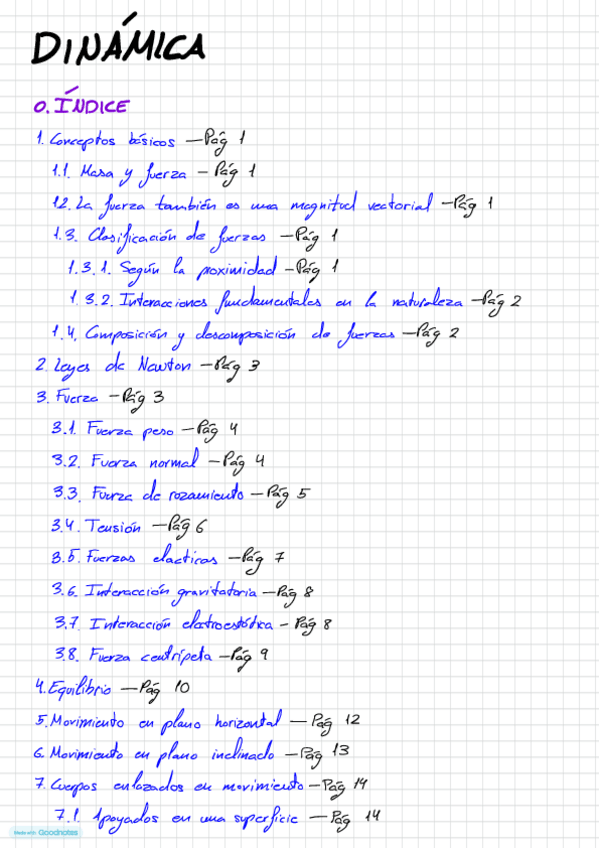 DINÁMICA
0. ÍNDICE
1. Conceptos básicos — Pág 1
1.1. Masa y fuerza — Pág 1
1.2. La fuerza también es una magnitud vectorial — Pág 1
1.3. Clasificación de fuerzas — Pág 1
1.3.1. Según la proximidad — Pág 1
1.3.2. Interacciones fundamentales en la naturaleza — Pág 2
1.4. Composición y descomposición de fuerzas — Pág 2
2. Leyes de Newton — Pág 3
3. Fuerza — Pág 3
3.1. Fuerza peso — Pág 4
3.2. Fuerza normal — Pág 4
3.3. Fuerza de rozamiento — Pág 5
3.4. Tensión — Pág 6
3.5. Fuerzas elacticas — Pág 7
3.6. Interacción gravitatoria — Pág 8
3.7. Interacción electroestática - Pág 8
3.8. Fuerza centrípeta — Pág 9
4. Equilibrio — Pág 10
5. Movimiento en plano horizontal — Pág 12
6. Movimiento en plano inclinado — Pág 13
7. Cuerpos enlazados en movimiento — Pág 14
7.1. Apoyados en una superficie — Pág 14
Made with Goodnotes